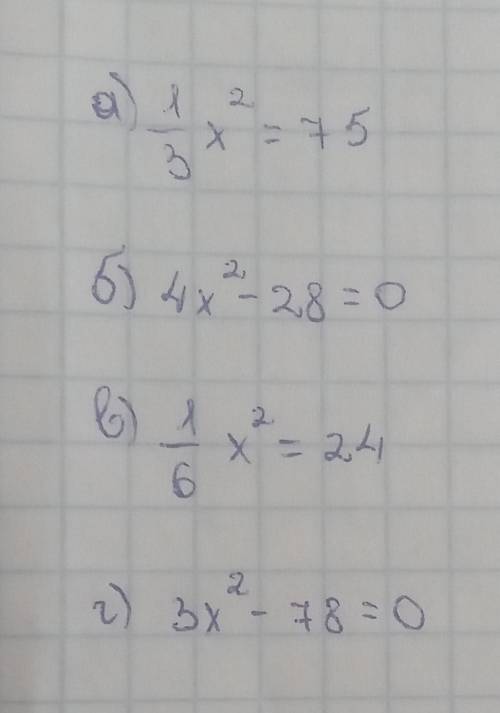 а) 1/3 x² = 75
б) 4x² - 28 = 0
в) 1/6 x² = 24
г) 3x² - 78 = 0